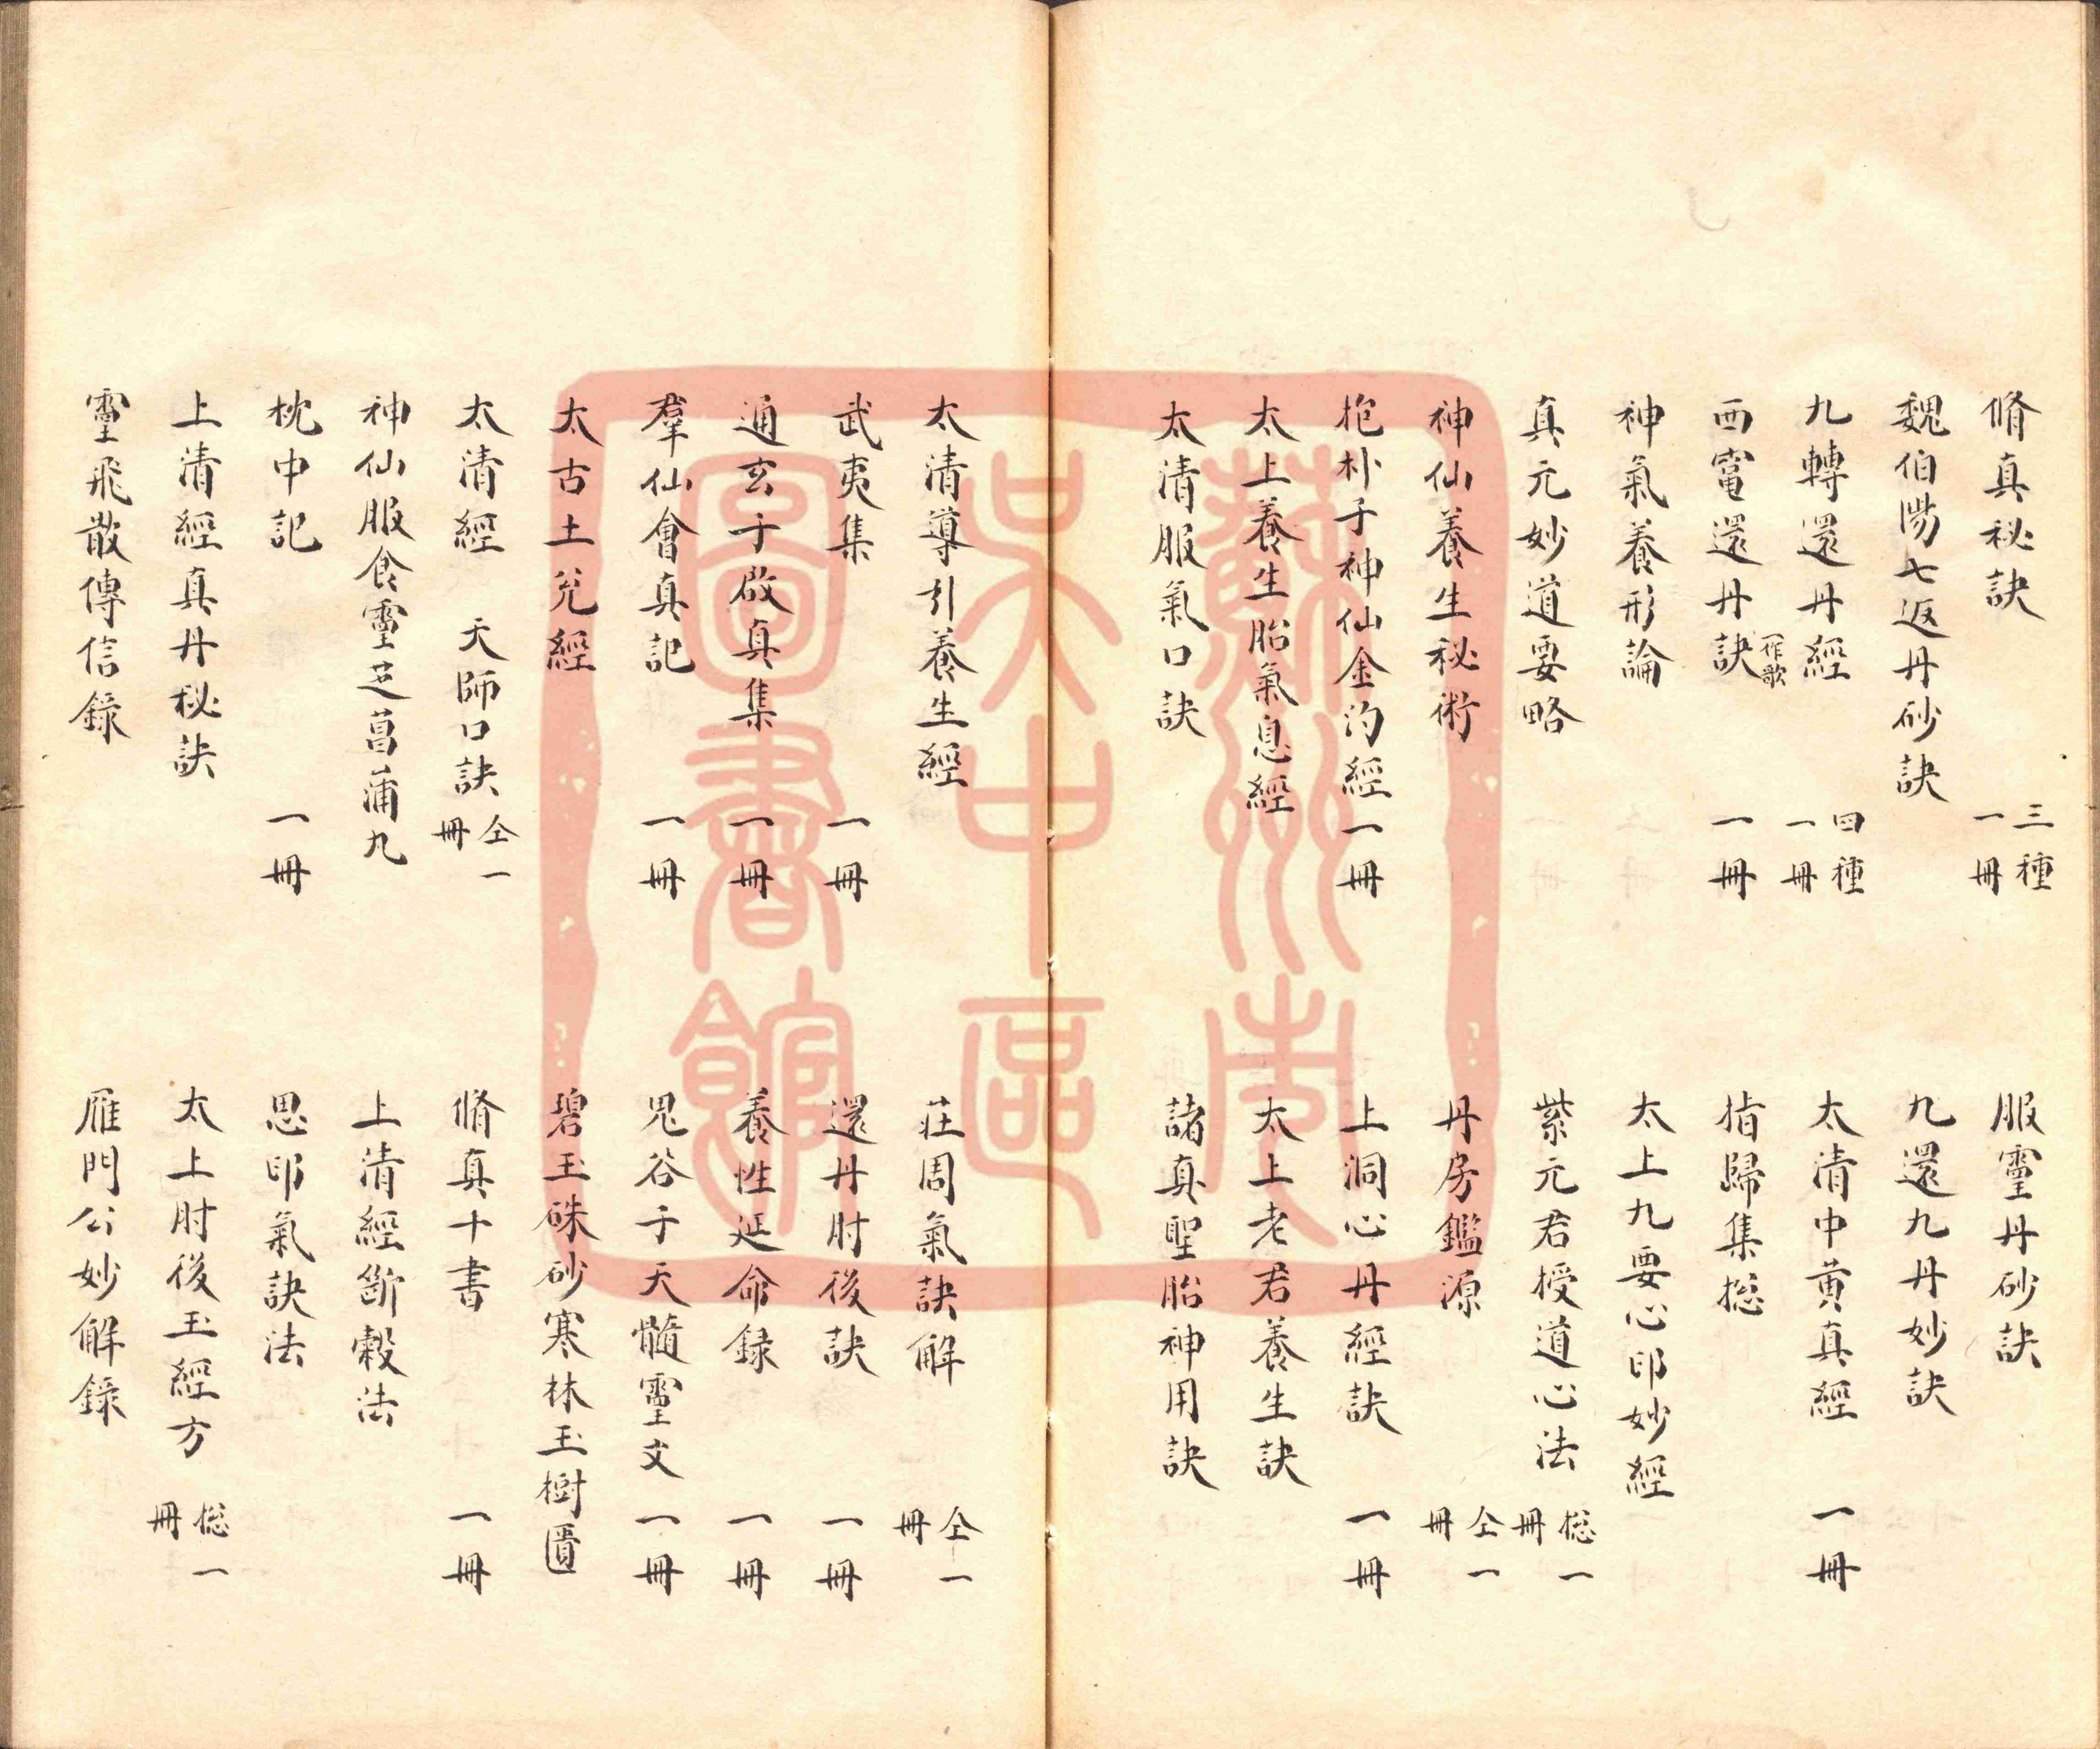 脩真秘訣 三種一冊 服靈丹砂訣
魏伯陽七返丹砂訣 九還九丹妙訣
九轉還丹經 四種一冊 太清中黄真經 一冊
西竈還丹訣 一作歌 一冊 指歸集捴
神氣養形論 太上九要心印妙經
真元妙道要略 紫元君授道心法 捴一冊
神仙養生秘術 丹房鑑源 仝一冊
抱朴子神仙金汋經 一冊 上洞心丹經訣 一冊
太上養生胎氣息經 太上老君養生訣
太清服氣口訣 諸真聖胎神用訣
太清導引養生經 莊周氣訣解 仝一冊
武夷集 一冊 還丹肘後訣 一冊
通玄子啟真集 一冊 養性延命録 一冊
羣仙會真記 一冊 鬼谷子天髓靈文 一冊
太古土兊經 碧玉硃砂寒林玉樹匱
太清經 天師口訣 仝一冊 脩真十書 一冊
神仙服食靈芝菖蒲丸 上清經斷穀法
枕中記 一冊 思印氣訣法
上清經真丹秘訣 太上肘後玉經方 捴一冊
靈飛散傳信錄 雁門公妙解錄
蘇州市
吴中區
圖書館